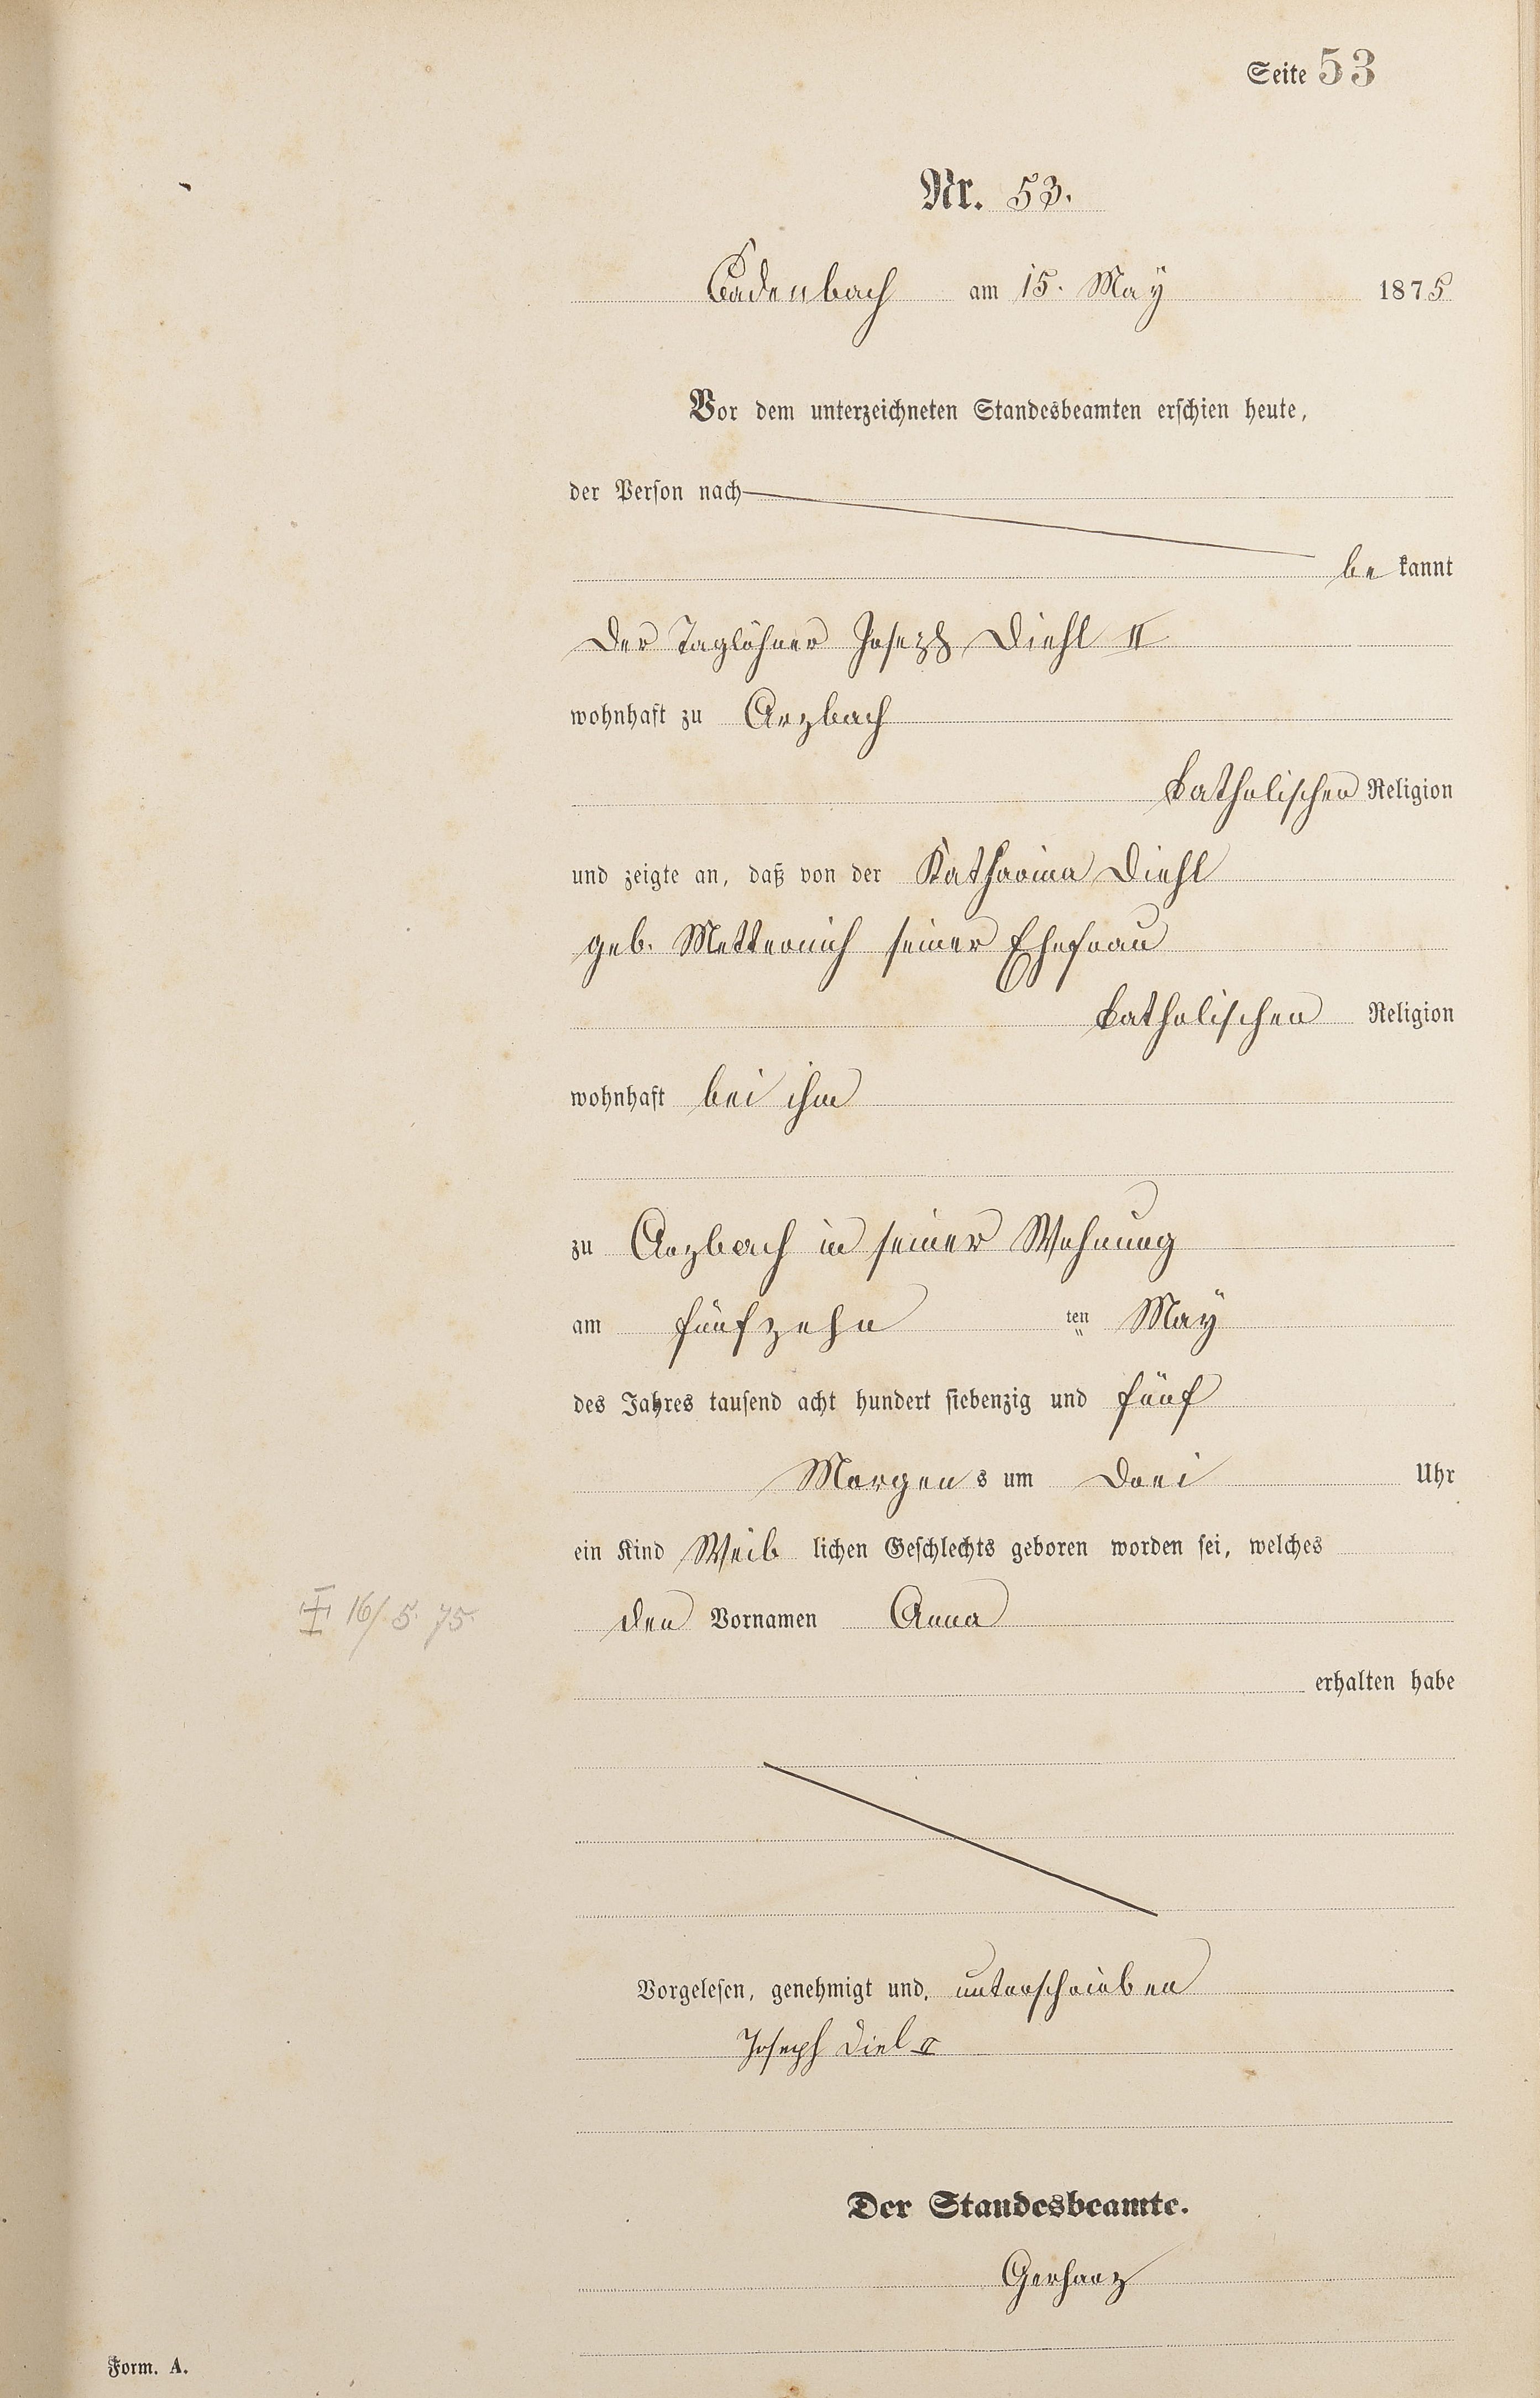 Seite 53
Nr. 53.
Cadenbach am 15. May 1875
Vor dem unterzeichneten Standesbeamten erschien heute,
der Person nach
be kannt
Der Taglöhner Joseph Diehl II
wohnhaft zu Arzbach
katholischer Religion
und zeigte an, daß von der Katharina Diehl
geb. Metternich seiner Ehefrau
katholischen Religion
wohnhaft bei ihm
zu Arzbach in seiner Wohnung
am fünfzehn ten May
des Jahres tausend acht hundert siebenzig und fünf
Morgens um Drei Uhr
ein Kind Weib lichen Geschlechts geboren worden sei, welches
16/5. 75.
den Vornamen Anna
erhalten habe
Vorgelesen, genehmigt und unterschrieben
Joseph Diel II
Der Standesbeamte.
Gerharz
Form. A.